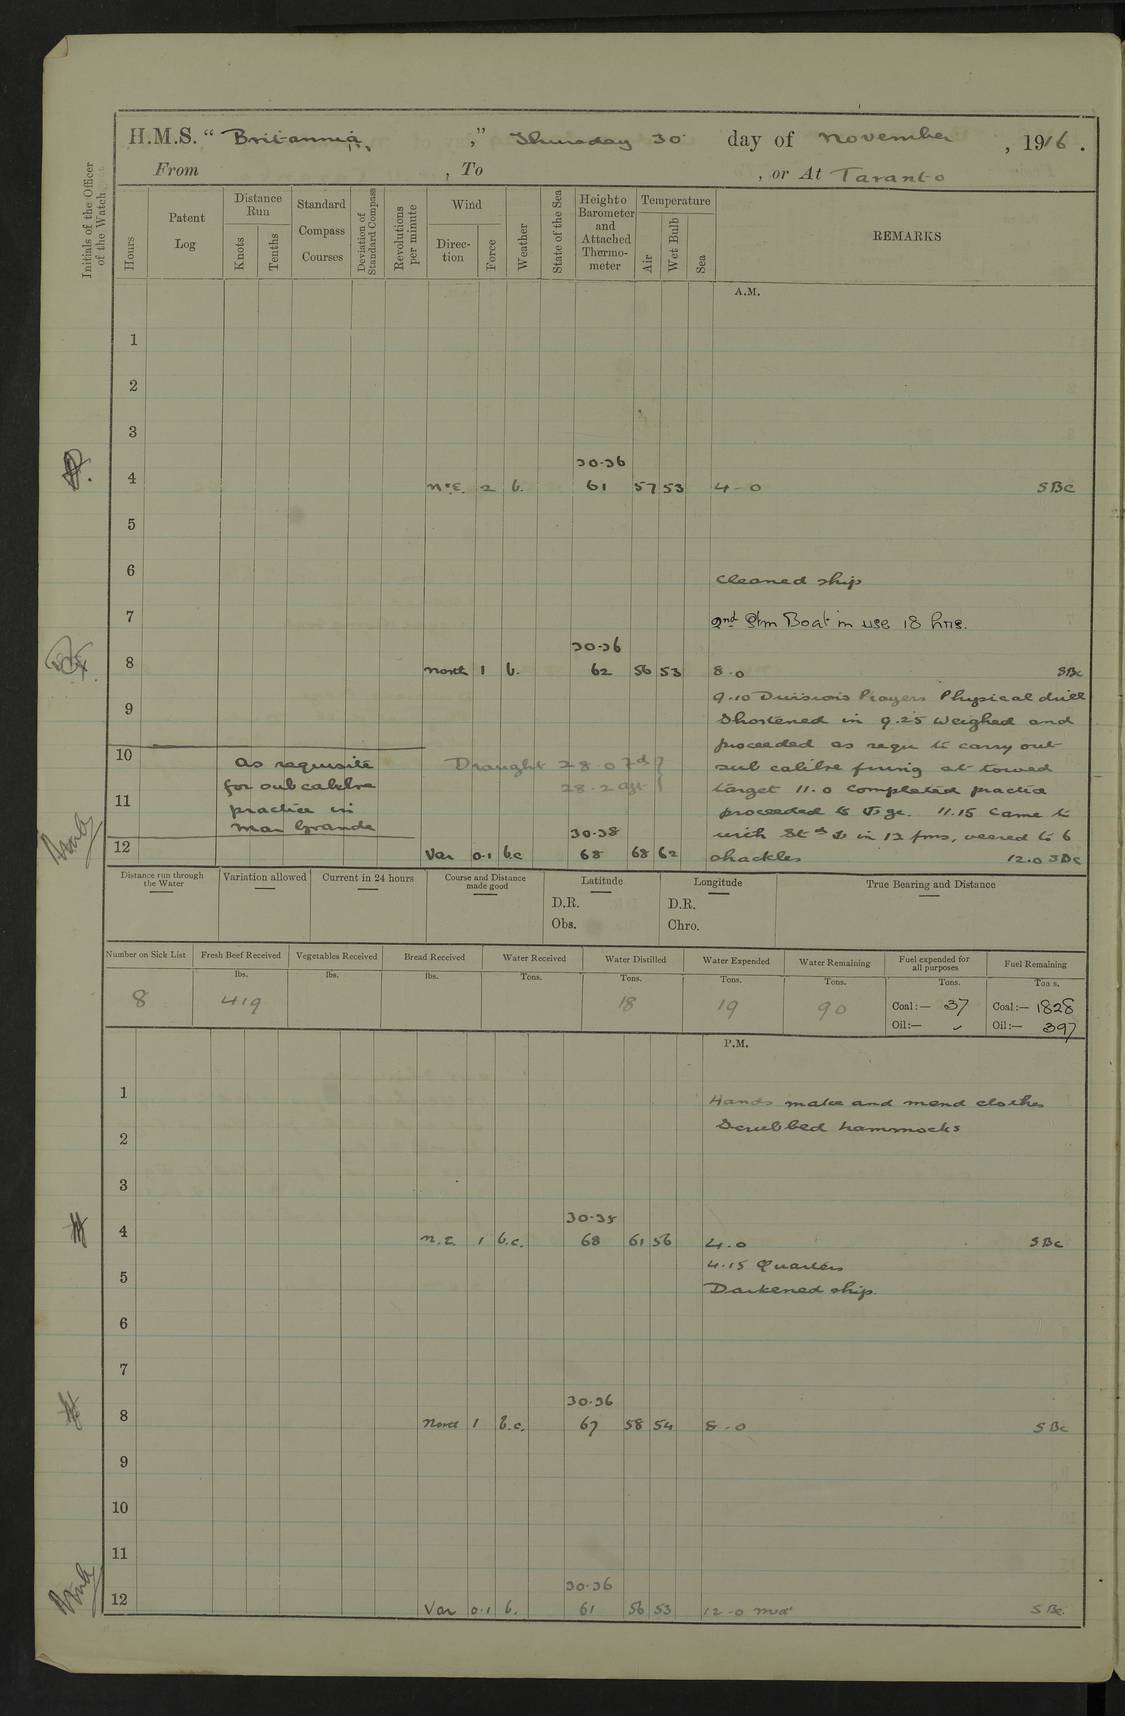 H.M.S. " Britannia ", " Thursday 30 day of November , 1916 .
From , To , or At Taranto
Initials of the Officer of the Watch
Hours
Patent Log
Distance Run
Knots
Tenths
Standard Compass Courses
Deviation of Standard Compass
Revolutions per minute
Wind
Direc-tion
Force
Weather
State of the Sea
Height o Barometer and Attached Thermo-meter
Temperature
Air
Wet Bulb
Sea
REMARKS
A.M.
1
2
3
30.36
4 N.E. 2 b. 61 57 53 4-0 SBC
5
6 Cleaned ship
7 2nd Stm Boat in use 18 hrs.
30.36
8 North 1 b. 62 56 53 8.0 SBc
9.10 Divisions Prayers Physical drill
9 Shortened in 9.25 Weighed and
proceeded as requ to carry out
10 As requisite Draught 28.0 fd } sub calibre firing at towed
for sub calibre 28.2 aft } target 11.0 Completed practice
11 practice in proceeded to 11.15 Came to
Mar Grande 30.38 with St in 12 fms, veered to 6
12 Var 0.1 bc 68 68 62 shackles 12.0 SBc
Distance run through the Water
Variation allowed
Current in 24 hours
Course and Distance made good
Latitude
D.R.
Obs.
Longitude
D.R.
Chro.
True Bearing and Distance
Number on Sick List Fresh Beef Received Vegetables Received Bread Received Water Received Water Distilled Water Expended Water Remaining Fuel expended for all purposes Fuel Remaining
lbs. lbs. lbs. Tons. Tons. Tons. Tons. Tons. Tons.
8 419 18 19 90 Coal:— 37 Coal:— 1828
Oil:— Oil:— 397
P.M.
1 Hands make and mend clothes
2 Scrubbed hammocks
3
30.35
4 N.E. 1 b.c. 68 61 56 4.0 SBc
4.15 Quarters
5 Darkened ship.
6
7
30.36
8 North 1 b.c. 67 58 54 8-0 SBc
9
10
11
30.36
12 Var 0.1 b. 61 56 53 12-0 Mid SBc